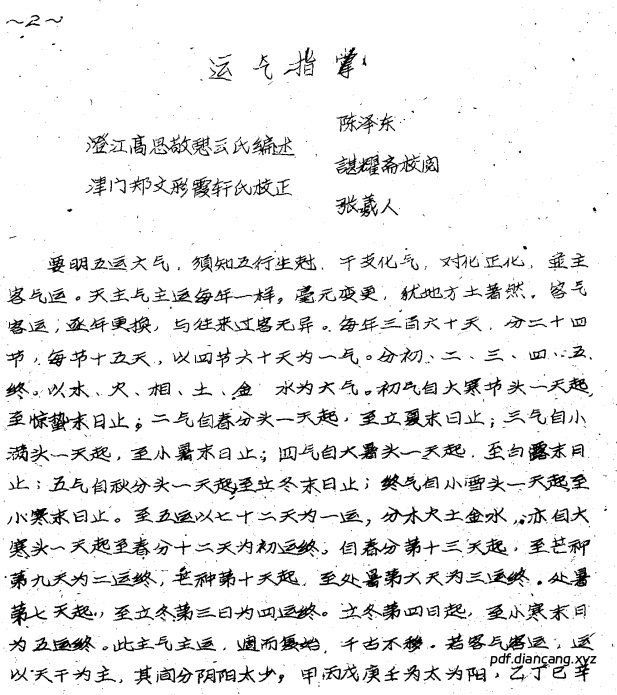 ~2~
运气指掌
陈泽东
澄江高思敬憩云氏编述
谌耀斋校阅
津门郑文彩霞轩氏校正
张羲人
要明五运六气，须知五行生尅，干支化气，对化正化，並主
客气运。天主气主运每年一样。毫无变更，犹地方土著然。客气
客运，逐年更换，与往来过客无异。每年三百六十天，分二十四
节，每节十五天，以四节六十天为一气。分初、二、三、四、五、
终。以木、火、相、土、金 水为六气。初气自大寒节头一天起，
至惊蛰末日止；二气自春分头一天起，至立夏末日止；三气自小
满头一天起，至小暑末日止；四气自大暑头一天起，至白露末日
止；五气自秋分头一天起至立冬末日止；终气自小雪头一天起至
小寒末日止。至五运以七十二天为一运，分木火土金水，亦自大
寒头一天起至春分十二天为初运终。自春分第十三天起，至芒种
第九天为二运终，芒种第十天起，至处暑第六天为三运终。处暑
第七天起，至立冬第三日为四运终。立冬第四日起，至小寒末日
为五运终。此主气主运，週而复始，千古不移。若客气客运，运
以天干为主，其间分阴阳太少，甲丙戊庚壬为太为阳，乙丁己辛
pdf.diancang.xyz